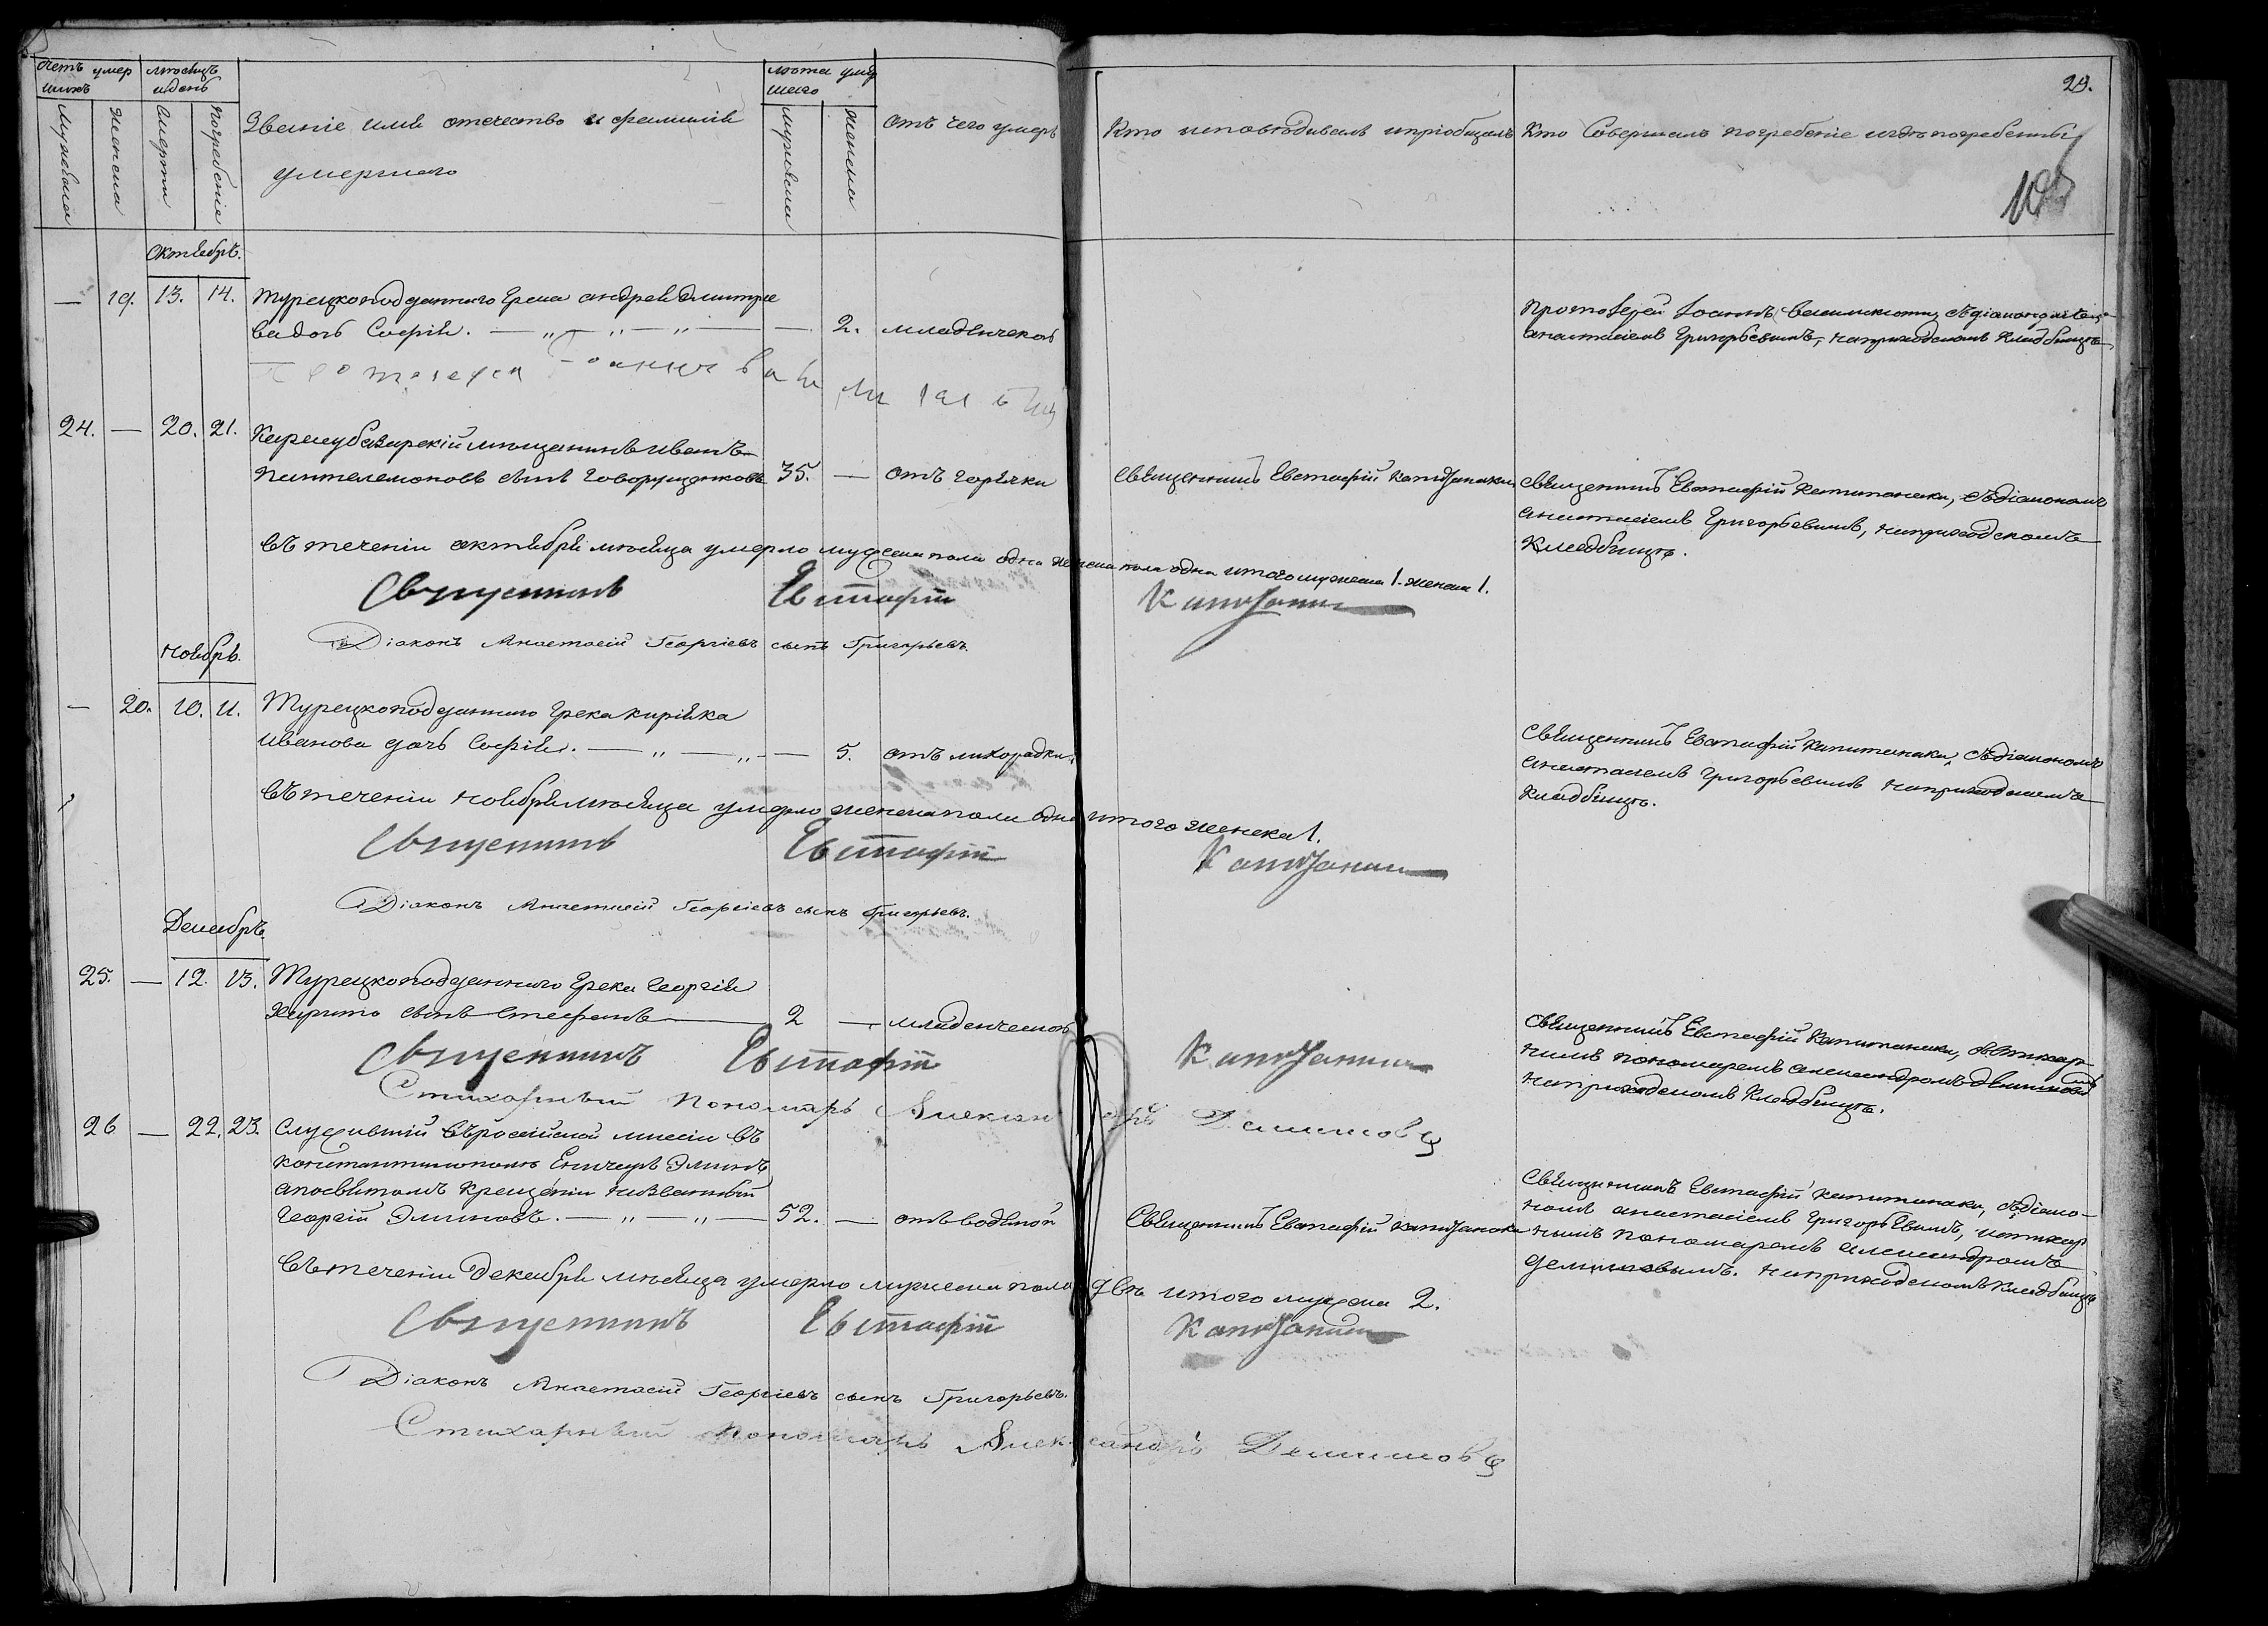 29.
Счетъ умер
шихъ
Мѣсяцъ
и день
Мужеска
Женска
Смерти
Погребенія
Званіе имя отечество и фамилія
умершаго
Лѣта умер
шаго
Мужеска
Женска
Отъ чего умеръ
Кто исповѣдывалъ и пріобщалъ
Кто совершалъ погребеніе и гдѣ погребены
Октябрь.
— 19. 13. 14. Турецкоподданнаго Грека Андрея Дмитріе
ва дочь Софія. — — 2. младенческой
Протоіерей Іоаннъ съ діакономъ
Анастасіемъ Григорьевымъ, на приходскомъ кладбищѣ
Протоіерей Іоаннъ
24. — 20. 21. Карасубазарскій мѣщанинъ Иванъ
Пантелемоновъ сынъ Говорущенковъ 35. — отъ горячки
Священникъ Евстафій Капитанаки
Священникъ Евстафій Капитанаки, съ діакономъ
Анастасіемъ Григорьевымъ, на приходскомъ
кладбищѣ.
Въ теченіи октября мѣсяца умерло мужеска пола одна женска пола одна итого мужеска 1. женска 1.
Священникъ Евстафій Капитанаки
Діаконъ Анастасій Георгіевъ сынъ Григорьевъ.
Ноябрь.
— 20. 10. 11. Турецкоподданнаго Грека Кирiяка
Иванова дочь Софія. — — 5. отъ лихорадки.
Священникъ Евстафій Капитанаки, съ діакономъ
Анастасіемъ Григорьевымъ на приходскомъ
кладбищѣ.
Въ теченіи ноября мѣсяца умерло женска пола одна итого женска 1.
Священникъ Евстафій Капитанаки
Діаконъ Анастасій Георгіевъ сынъ Григорьевъ.
Декабрь.
25. — 12. 13. Турецкоподданнаго Грека Георгія
сынъ Стефанъ — 2 — младенческой
Священникъ Евстафій Капитанаки, съ стихар
нымъ пономаремъ Александромъ
на приходскомъ кладбищѣ.
Священникъ Евстафій Капитанаки
Стихарный пономарь Александръ
26 — 22. 23. Служившій въ россійской миссіи въ
Константинополѣ Эминъ
а по святомъ крещеніи названный
Георгій Эминовъ. — — 52. — отъ водяной
Священникъ Евстафій Капитанаки
Священникъ Евстафій Капитанаки, съ діако-
номъ Анастасіемъ Григорьевымъ, и стихар
нымъ пономаремъ Александромъ
на приходскомъ кладбищѣ
Въ теченіи декабря мѣсяца умерло мужеска пола два итого мужеска 2.
Священникъ Евстафій Капитанаки
Діаконъ Анастасій Георгіевъ сынъ Григорьевъ.
Стихарный пономарь Александръ